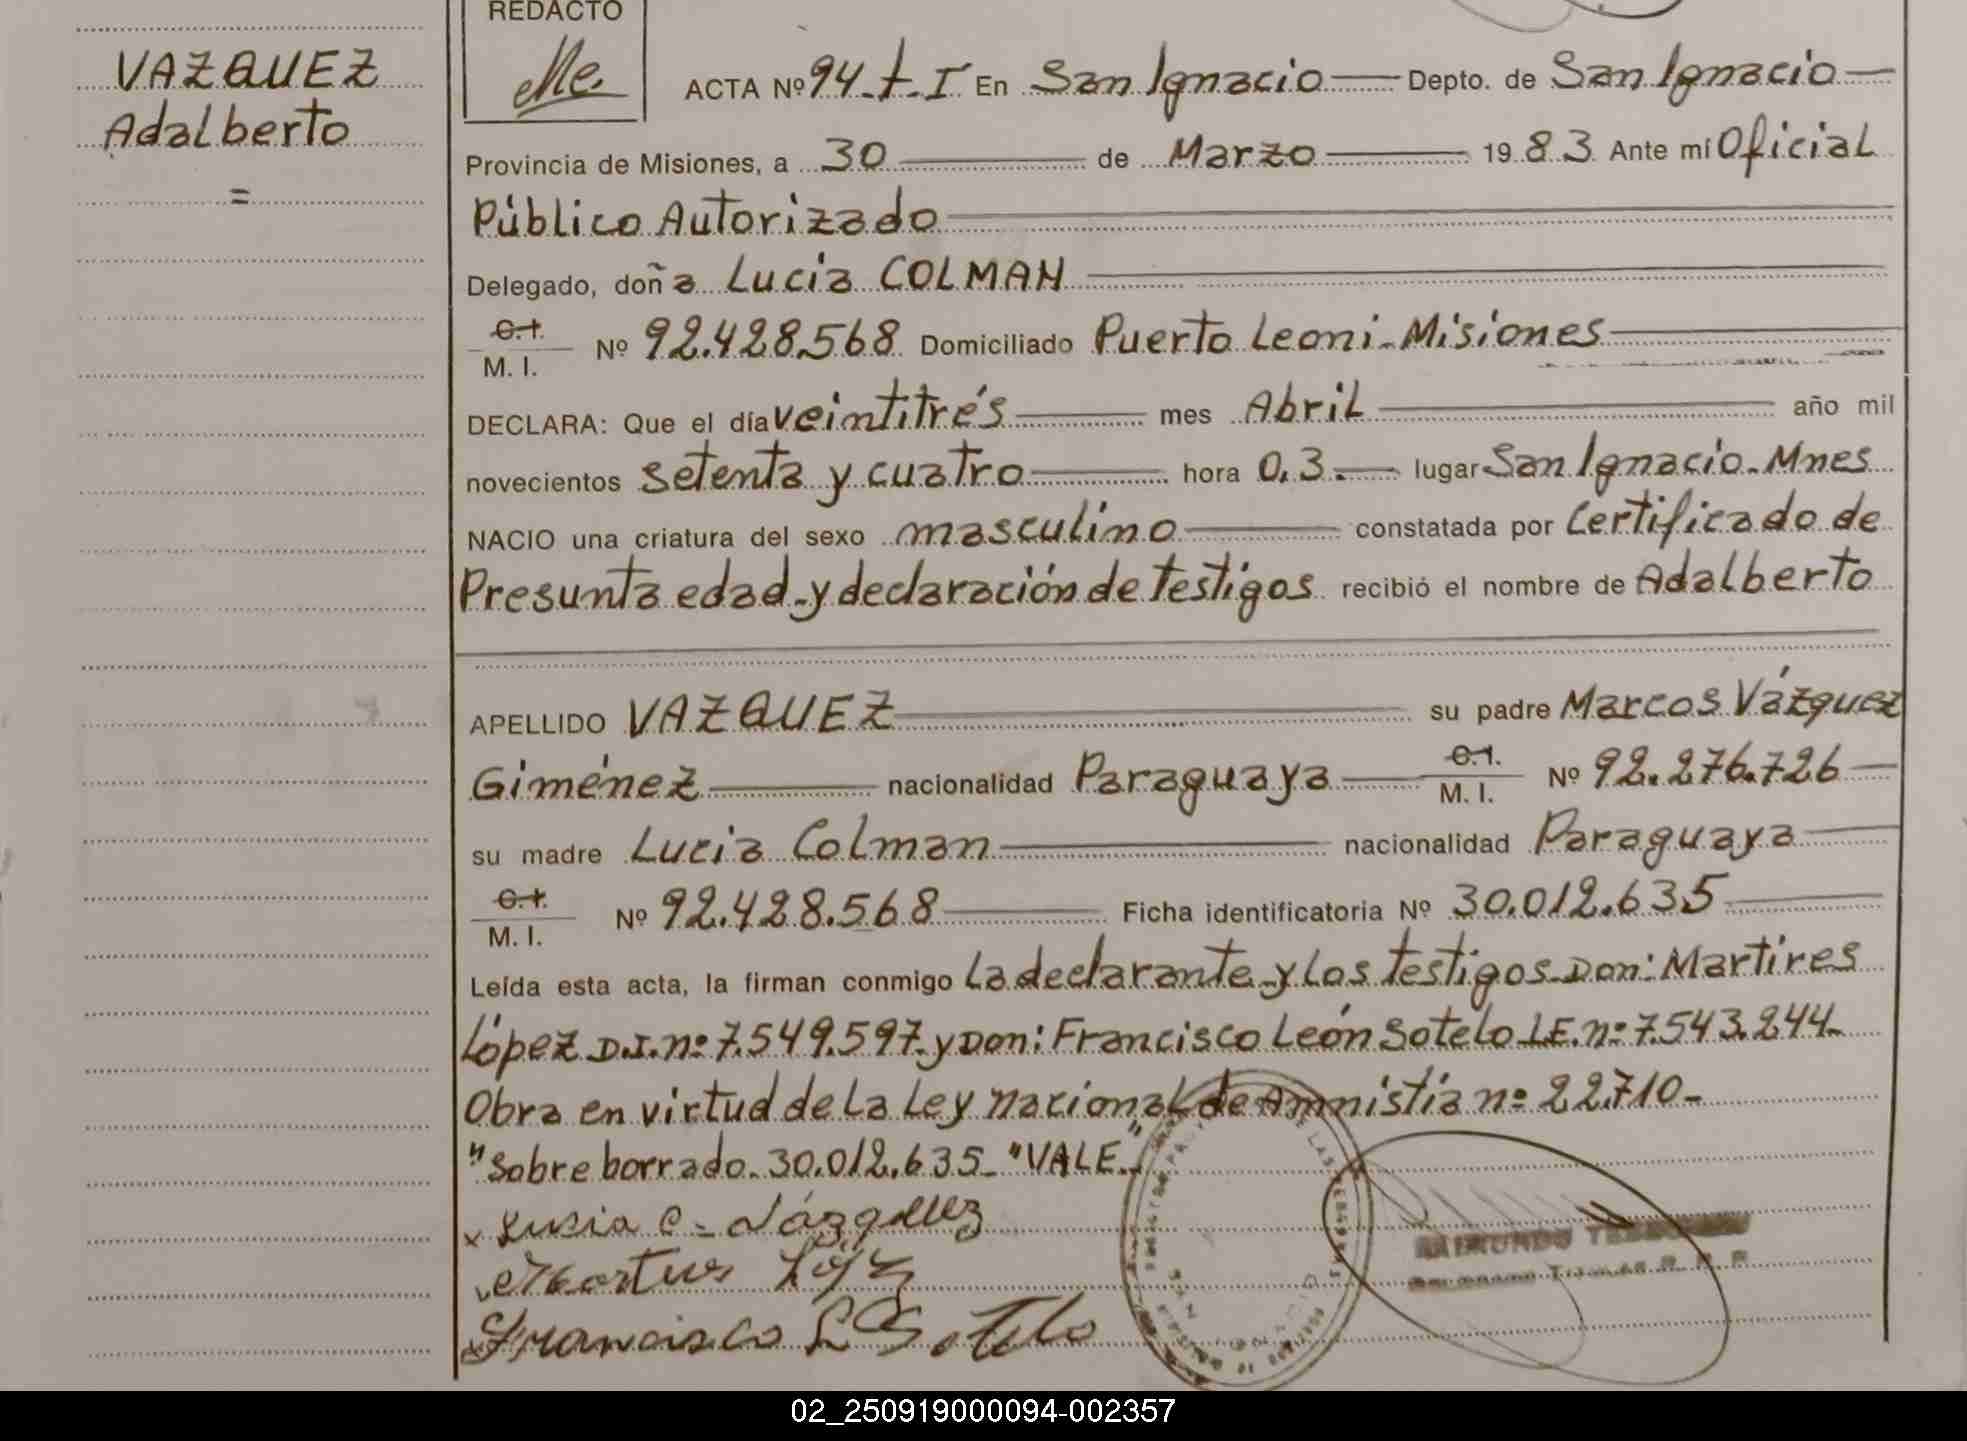 VAZQUEZ
Adalberto
=
REDACTO
ACTA Nº 94-t-I En San Ignacio Depto. de San Ignacio
Provincia de Misiones, a 30 de Marzo 1983 Ante mi Oficial
Público Autorizado
Delegado, doña Lucia COLMAN
C.I.
M. I. Nº 92.428.568 Domiciliado Puerto Leoni-Misiones
DECLARA: Que el día veintitrés mes Abril año mil
novecientos setenta y cuatro hora 0,3.- lugar San Ignacio-Mnes
NACIO una criatura del sexo masculino constatada por Certificado de
Presunta edad-y declaración de testigos recibió el nombre de Adalberto
APELLIDO VAZQUEZ su padre Marcos Vázquez
Giménez nacionalidad Paraguaya C.I. M. I. Nº 92.276.726
su madre Lucia Colman nacionalidad Paraguaya
C.I.
M. I. Nº 92.428.568 Ficha identificatoria Nº 30.012.635
Leída esta acta, la firman conmigo la declarante-y los testigos-Don: Martires
López D.I. nº 7.549.597-y Don: Francisco León Sotelo L.E. nº 7.543.244-
Obra en virtud de la Ley nacional de Amnistia nº 22.710-
"Sobre borrado-30.012.635-"VALE-"
x Lusia C- Vázquez
Martires López
x Francisco L Sotelo
RAIMUNDO
02_250919000094-002357